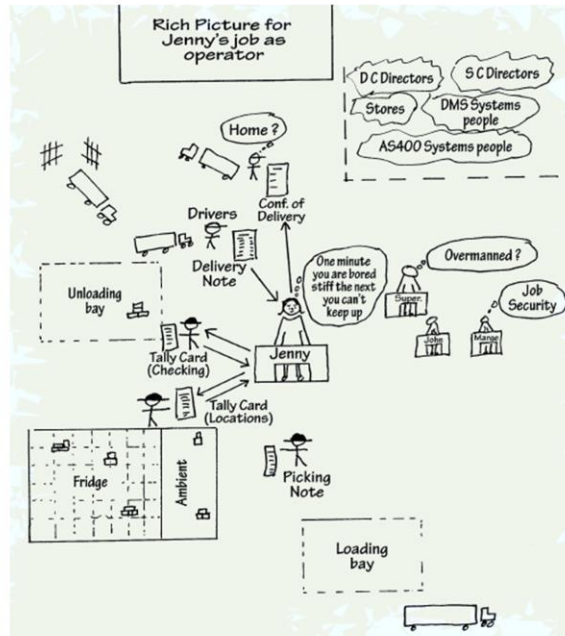 Rich Picture for
Jenny's job as
operator
D C Directors
S C Directors
Stores
DMS Systems
people
AS400 Systems people
Home ?
Conf. of
Delivery
Drivers
Delivery
Note
One minute
you are bored
stiff the next
you can't
keep up
Overmanned ?
Super.
Job
Security
John
Marge
Unloading
bay
Jenny
Tally Card
(Checking)
Tally Card
(Locations)
Fridge
Ambient
Picking
Note
Loading
bay